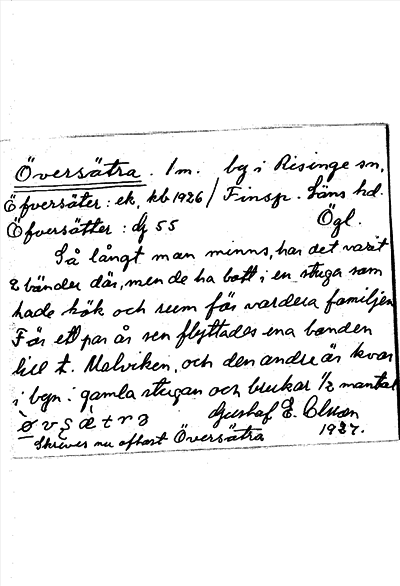 Översätra. 1 m. by i Risinge sn,
Öfversäter: ek, kb 1926 / Finsp. Läns hd.
Öfversätter: dj 55 Ögl.
Så långt man minns, har det varit
2 bönder där, men de ha bott i en stuga som
hade kök och rum för vardera familjen
För ett par år sen flyttades ena bonden
till t. Malviken, och den andre är kvar
i byn i gamla stugan och brukar 1/2 mantal
Gustaf E. Olsson
Skrives nu oftast Översätra 1927.